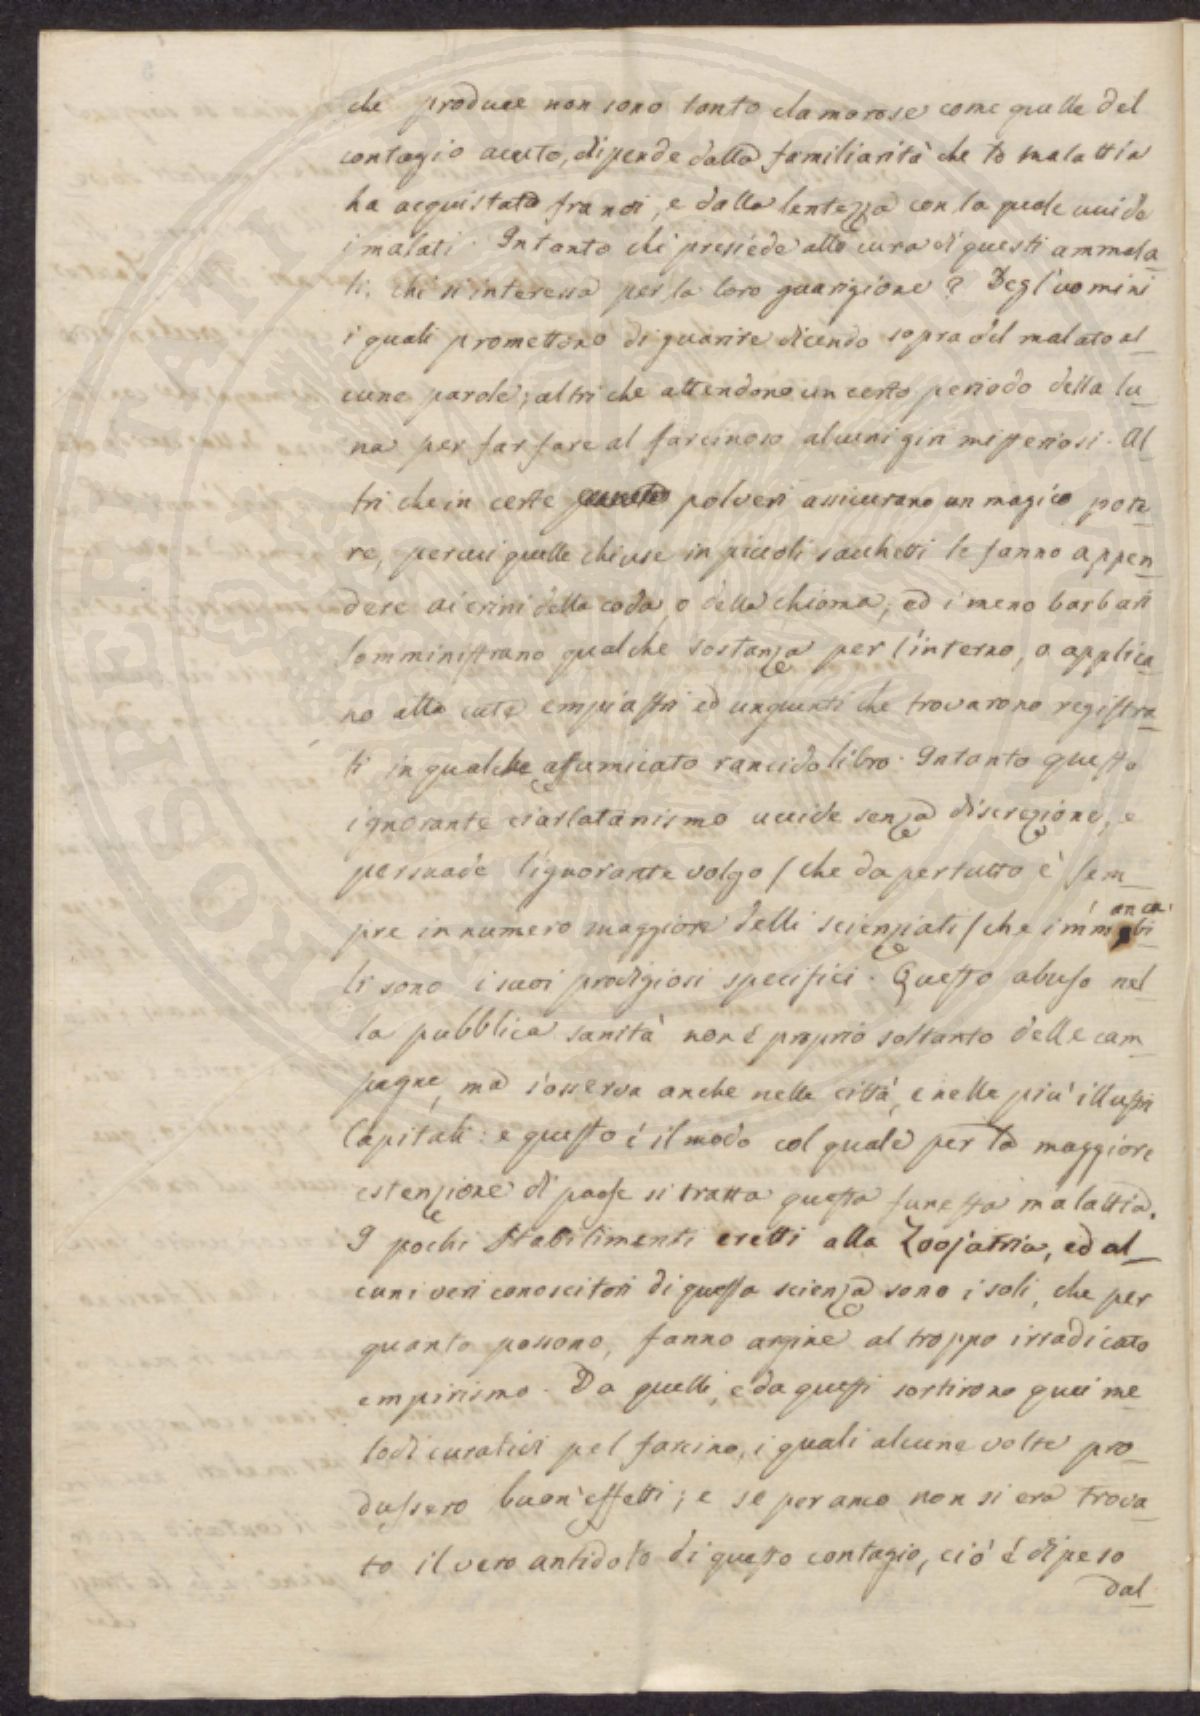 che produce non sono tanto clamorose come quelle del
contagio acuto, dipende dalla familiarità che la malattia
ha acquistata fra noi, e dalla lentezza con la quale uccide
i malati. Intanto chi presiede alla cura di questi ammala_
ti, chi si interessa per la loro guarigione? Degl'uomini
i quali promettono di guarire dicendo sopra del malato al_
cune parole; altri che attendono un certo periodo della lu_
na per far fare al farcinoso alcuni giri misteriosi. Al_
tri che in certe polveri assicurano un magico pote_
re, per cui quelle chiuse in piccoli sacchetti le fanno appen_
dere ai crini della coda, o della chioma; ed i meno barbari
somministrano qualche sostanza per l'interno, o applica_
no alla cute empiastri ed unguenti che trovarono registra_
ti in qualche affumicato rancido libro. Intanto questo
ignorante ciarlatanismo uccide senza discrezione, e
persuade l'ignorante volgo / che da pertutto è sem_
pre in numero maggiore delli scienziati / che immancabi_
li sono i suoi prodigiosi specifici. Questo abuso nel_
la pubblica sanità non è proprio soltanto delle cam_
pagne, ma s'osserva anche nelle città, e nelle più illustri
Capitali: e questo è il modo col quale per la maggiore
estenzione di paese si tratta questa funesta malattia.
I pochi Stabilimenti eretti alla Zoojatria, ed al_
cuni veri conoscitori di questa scienza sono i soli, che per
quanto possono, fanno argine al troppo irradicato
empirismo. Da quelli, e da questi sortirono quei me_
todi curativi pel farcino, i quali alcune volte pro_
dussero buon'effetti; e se per anco non si era trova_
to il vero antidoto di questo contagio, ciò è dipeso
dal_